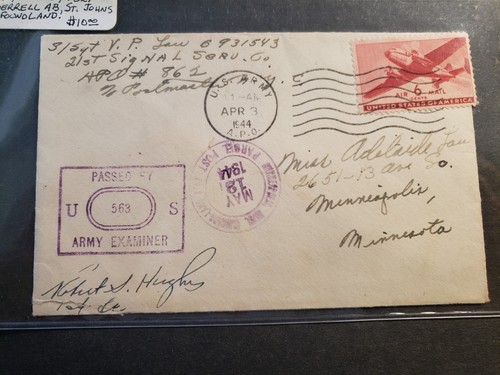 ERRELL AB, ST. JOHNS
$10.00
S/Sgt V. P. Lau 6931543
21st Signal Serv. Co.
APO # 862
% Postmaster N. Y.
U.S. ARMY
APR 3
1944
A.P.O.
6
AIR MAIL
CENTS
UNITED STATES OF AMERICA
Miss Adelaide Lau
2651-13 ave So.
Minneapolis,
Minnesota
MAY
18
1944
PARCEL POST
PASSED BY
U 563 S
ARMY EXAMINER
Robert S. Hughes
1st Lt.